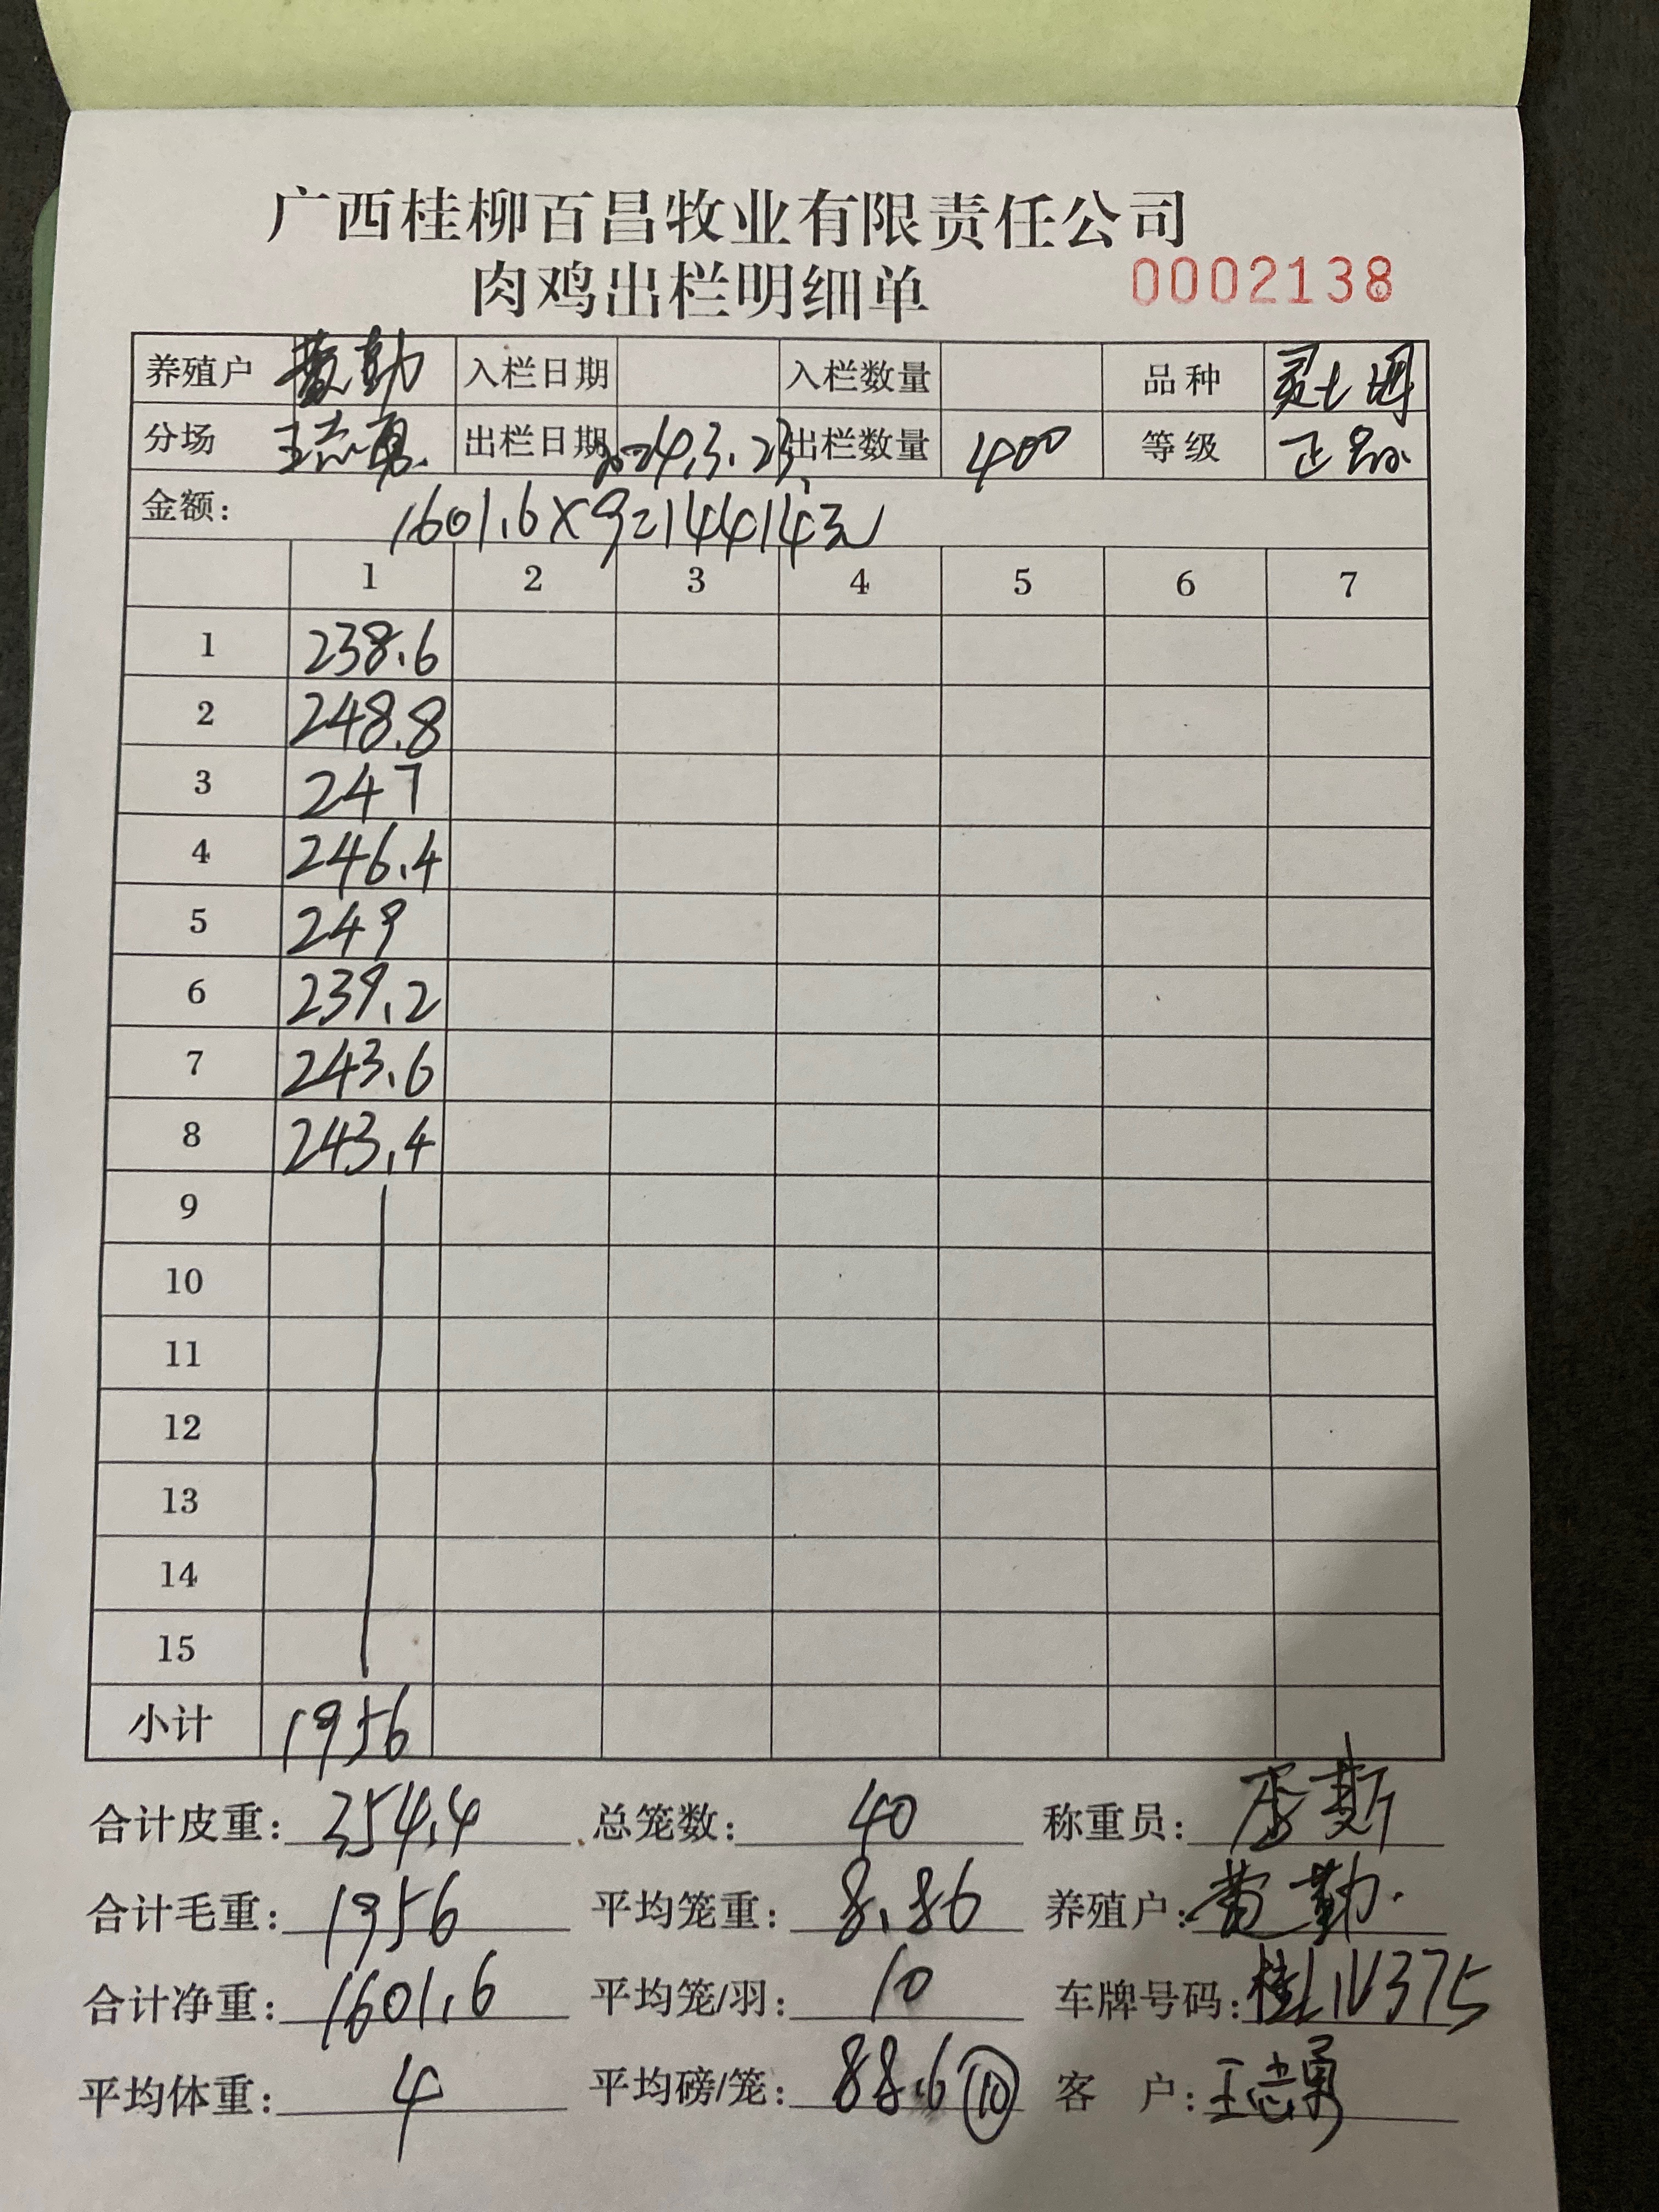 广西桂柳百昌牧业有限责任公司
肉鸡出栏明细单 0002138
养殖户 黄勤 入栏日期 入栏数量 品种 灵七
分场 王志勇 出栏日期 2024.3.23 出栏数量 400 等级 正品
金额: 1601.6×9=14414元
1 2 3 4 5 6 7
1 238.6
2 248.8
3 247
4 246.4
5 249
6 239.2
7 243.6
8 243.4
9
10
11
12
13
14
15
小计 1956
合计皮重: 354.4 总笼数: 40 称重员:
合计毛重: 1956 平均笼重: 8.86 养殖户: 黄勤
合计净重: 1601.6 平均笼/羽: 10 车牌号码: 桂L1V375
平均体重: 4 平均磅/笼: 88.6 ⑩ 客 户: 王志勇